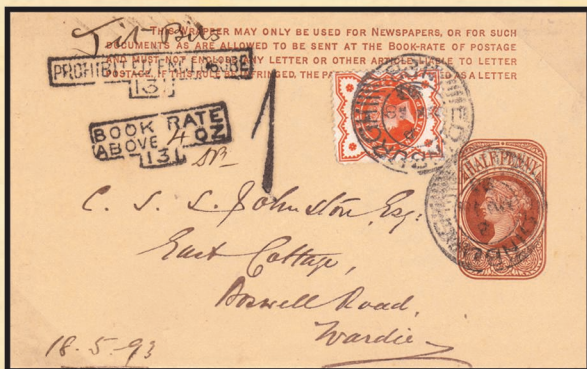 Tit Bits
THIS WRAPPER MAY ONLY BE USED FOR NEWSPAPERS, OR FOR SUCH
DOCUMENTS AS ARE ALLOWED TO BE SENT AT THE BOOK-RATE OF POSTAGE
AND MUST NOT ENCLOSE ANY LETTER OR OTHER ARTICLE LIABLE TO LETTER
POSTAGE. IF THIS RULE BE INFRINGED, THE AS A LETTER
PROHIBITED ENCLOSURE
131
BOOK RATE
ABOVE 4 OZ
131
1
HALFPENNY
C. S. S. Johnston, Esq:
East Cottage,
Boswell Road,
Wardie
18.5.93